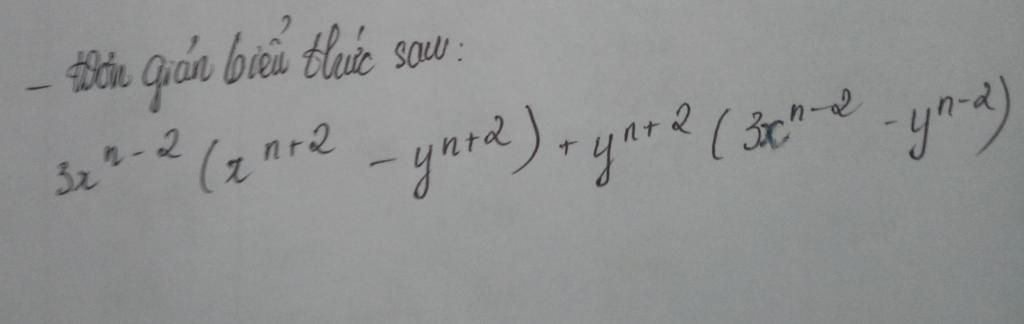 - Đơn giản biểu thức sau:
3x^{n-2} (x^{n+2} - y^{n+2}) + y^{n+2} (3x^{n-2} - y^{n-2})